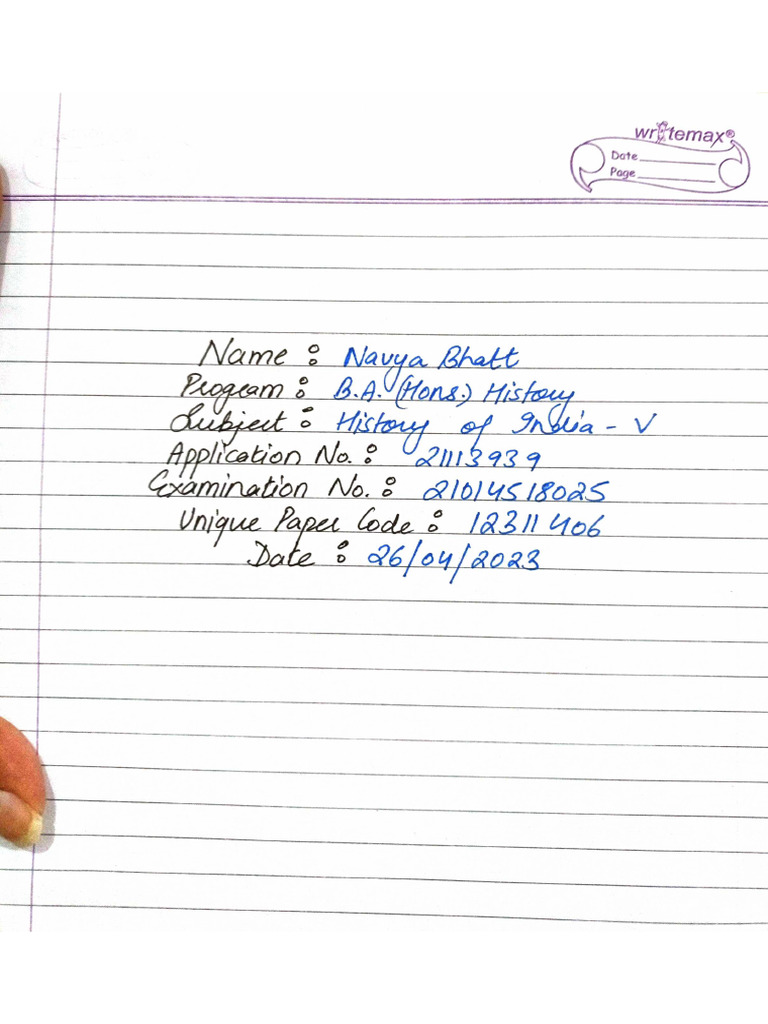 writemax®
Date
Page
Name : Navya Bhatt
Program : B.A. (Hons.) History
Subject : History of India - V
Application No. : 21113939
Examination No. : 21014518025
Unique Paper Code : 12311406
Date : 26/04/2023